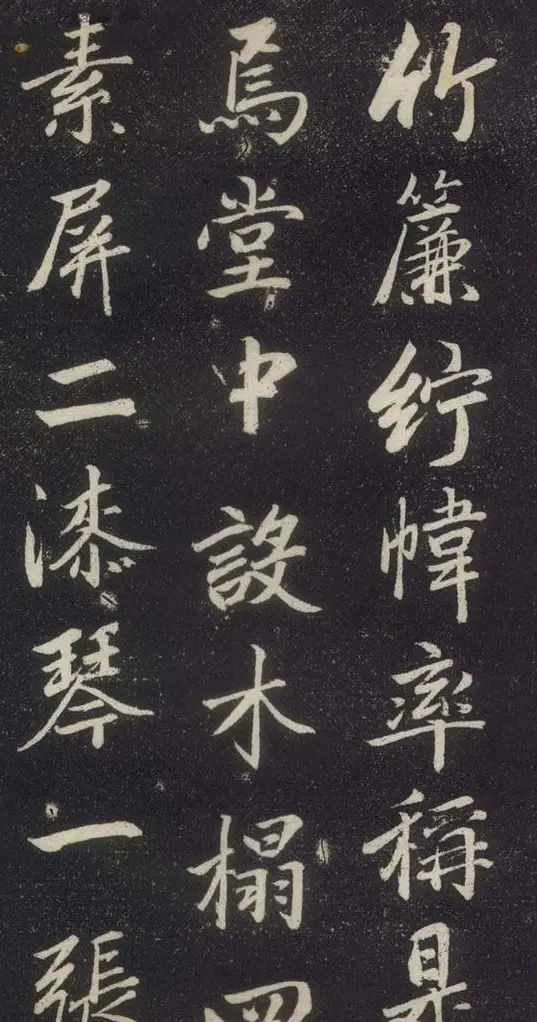 竹簾紵幃率稱是
焉堂中設木榻四
素屏二漆琴一張